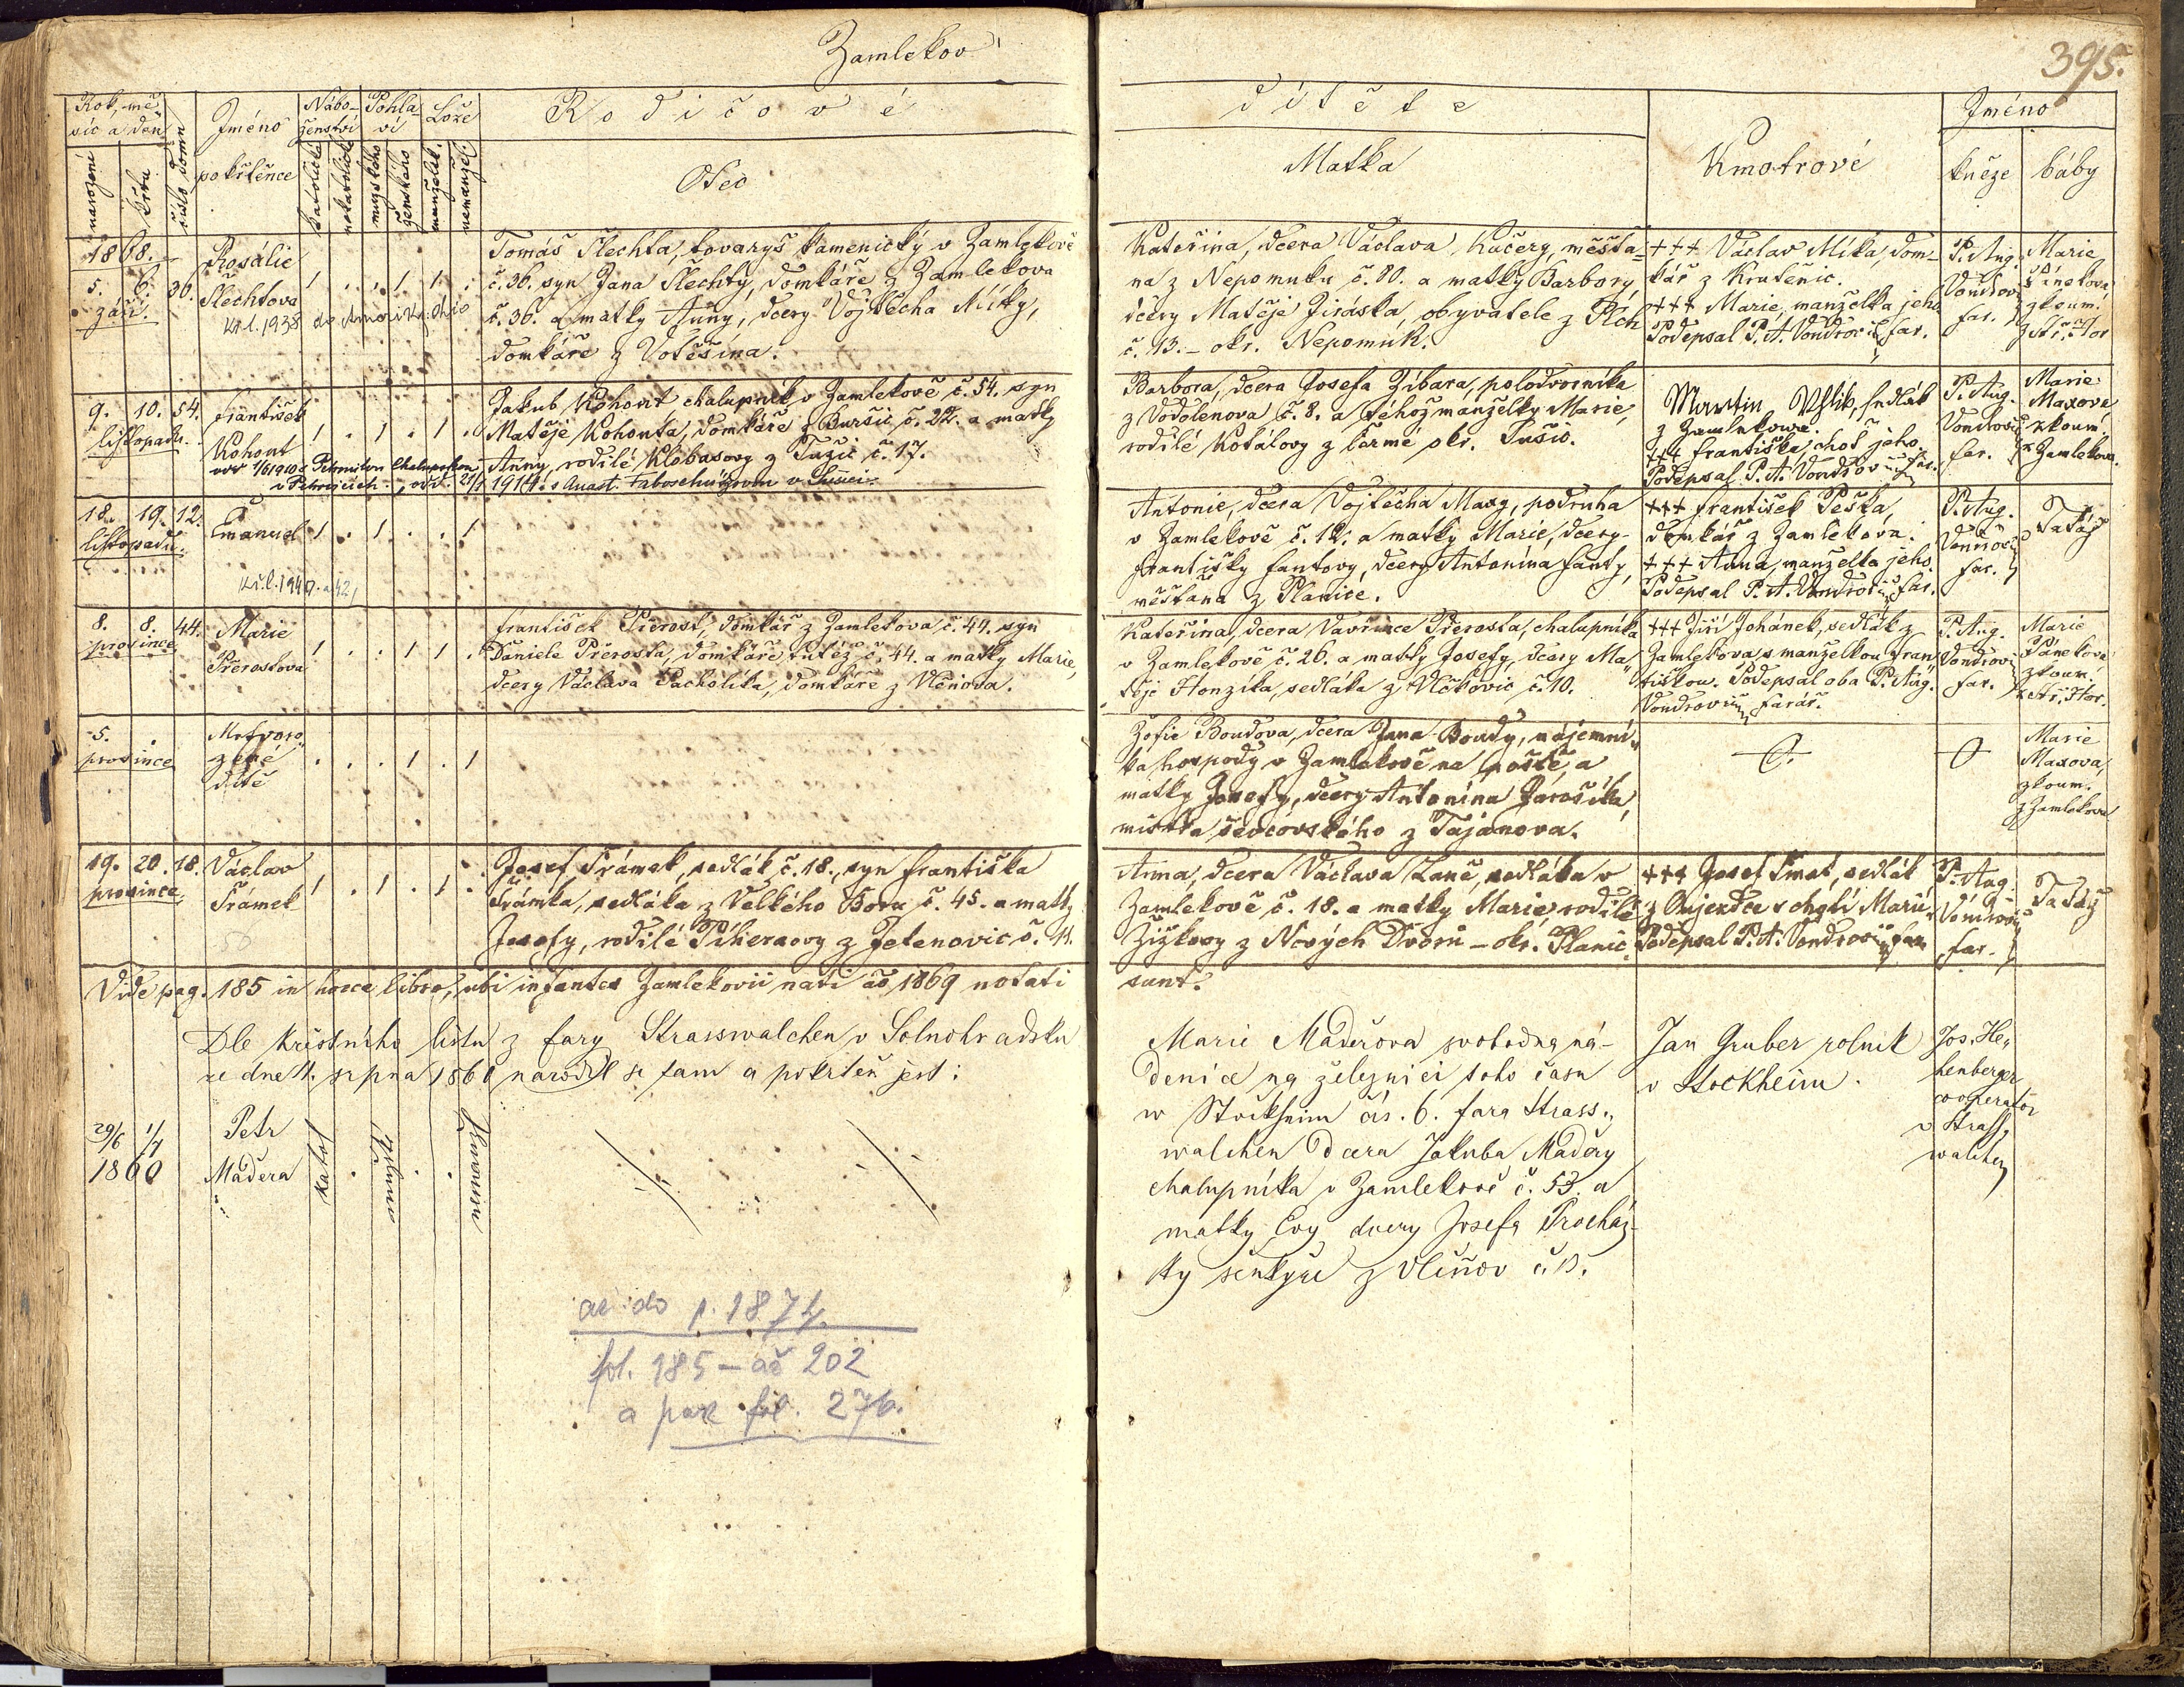 Zamlekov
395.
Rok, mě-
síc a den
narození
křtu
číslo domu
Jméno
pokřtěnce
Nábo-
ženství
katolické
nekatolické
Pohla-
ví
mužského
ženského
Lože
manželsk.
nemanžel.
Rodičové
Otec
dítěte
Matka
Kmotrové
Jméno
kněze
báby
1868.
5. 6. 36.
září.
Rosálie
Šlechtova
Kř.l. 1938 do Ameriky Ohio
1 . . 1 1 .
Tomáš Šlechta, tovaryš kamenický v Zamlekově
č. 36. syn Jana Šlechty, domkáře z Zamlekova
č. 36. a matky Anny, dcery Vojtěcha Míky,
domkáře z Votěšína.
Kateřina, dcera Václava Kučery, měšťa-
na z Nepomuku č. 80. a matky Barbory
dcery Matěje Jiráska, obyvatele z Plch
č. 13. – okr. Nepomuk.
+++ Václav Míka, dom-
kář z Kratenic.
+++ Marie, manželka jeho
Podepsal P. A. Vondrovic far.
P. Aug.
Vondrovic
far.
Marie
Pánekova
zkoum.
z Stř. Hor
9. 10. 54.
listopadu.
František
Kohout
1 . 1 . 1 .
odd. 1/6 1940 s Petronilou Chalupskou
v Petrovicích. , odd. 21/1 1914. s Anast. v Sušici
Jakub Kohout chalupník v Zamlekově č. 54. syn
Matěje Kohouta, domkáře z Buršic č. 22. a matky
Anny, rodilé Klobasovy z Tužic č. 17.
Barbora, dcera Josefa Zíbara, polodvorníka
z Vodolenova č. 8. a téhož manželky Marie,
rodilé Kotálovy z Čermé okr. Sušic.
Martin Uhlik, sedlák
z Zamlekowa.
+++ Františka, choť jeho.
Podepsal P. A. Vondrovic far.
P. Aug.
Vondrovic
far.
Marie
Maxova,
zkoum.
z Zamlekova.
18. 19. 12.
listopadu.
Emanuel
1 . 1 . . 1
Kř.l. 1940. a 42,
Antonie, dcera Vojtěcha Maxy, podruha
v Zamlekově č. 12. a matky Marie, dcery
Františky Fantovy, dcery Antonína Fanty,
měšťana z Planice.
+++ František Peška,
domkář z Zamlekova.
+++ Anna, manželka jeho.
Podepsal P. A. Vondrovic far.
P. Aug.
Vondrovic
far.
Tatáž
8. 8. 44.
prosince
Marie
Přerostova
1 . . 1 1 .
František Přerost, domkář z Zamlekova, č. 44. syn
Daniele Přerosta, domkáře tutéž č. 44. a matky Marie,
dcery Václava Pacholíka, domkáře z Včenova.
Kateřina, dcera Vavřince Přerosta, chalupníka
v Zamlekově č. 26. a matky Josefy, dcery Ma-
těje Honzíka, sedláka z Vlčkovic č. 10.
+++ Jiří Johánek, sedlák z
Zamlekova s manželkou Fran-
tiškou. Podepsal oba P. Aug.
Vondrovic farář.
P. Aug.
Vondrovic
far.
Marie
Pánekova
zkoum.
z Stř. Hor.
5.
prosince
Mrtvoro-
zené
dítě
. . . 1 . 1
Žofie Boudova, dcera Jana Boudy, nájemní-
ka hospody v Zamlekově na poště, a
matky Josefy, dcery Antonína Jarošíka,
mistra ševcovského z Tajanova.
Marie
Maxova,
zkoum.
z Zamlekova
19. 20. 18.
prosince
Václav
Šrámek
50
1 . 1 . 1 .
Josef Šrámek, sedlák č. 18., syn Františka
Šrámka, sedláka z Velkého Boru č. 45. a matky
Josefy, rodilé Píherovy z Jetenovic č. 11.
Anna, dcera Václava Laně, sedláka v
Zamlekově č. 18. a matky Marie rodilé
Žižkovy z Nových Dvorů – okr. Planic.
+++ Josef Šmat, sedlák
z Oujezdce s chotí Marií.
Podepsal P. A. Vondrovic far.
P. Aug.
Vondrovic
far.
Tatáž
Vide pag. 185 in hocce libro, ubi infantes Zamlekovii nati ao 1869 notati
sunt.
Dle křestního listu z fary Strasswalchen v Solnohradsku
ze dne 11. srpna 1860 narodil se tam a pokřtěn jest:
29/6 1/7
1860
Petr
Maděra
katol . . .
Marie Maděrova svobodna ná-
denice na železnici toho času
w Stockheim čís. 6. fara Strass-
walchen dcera Jakuba Maděry
chalupníka v Zamlekově č. 53. a
matky Evy dcery Josefa Procház-
ky šenkýře z Vlčnov č. 13.
Jan Gruber rolník
v Stockheim.
Jos. He-
henberger
cooperator
v Strass-
walchen
až do r. 1874
fol. 185 – až 202
a pak fol. 276.